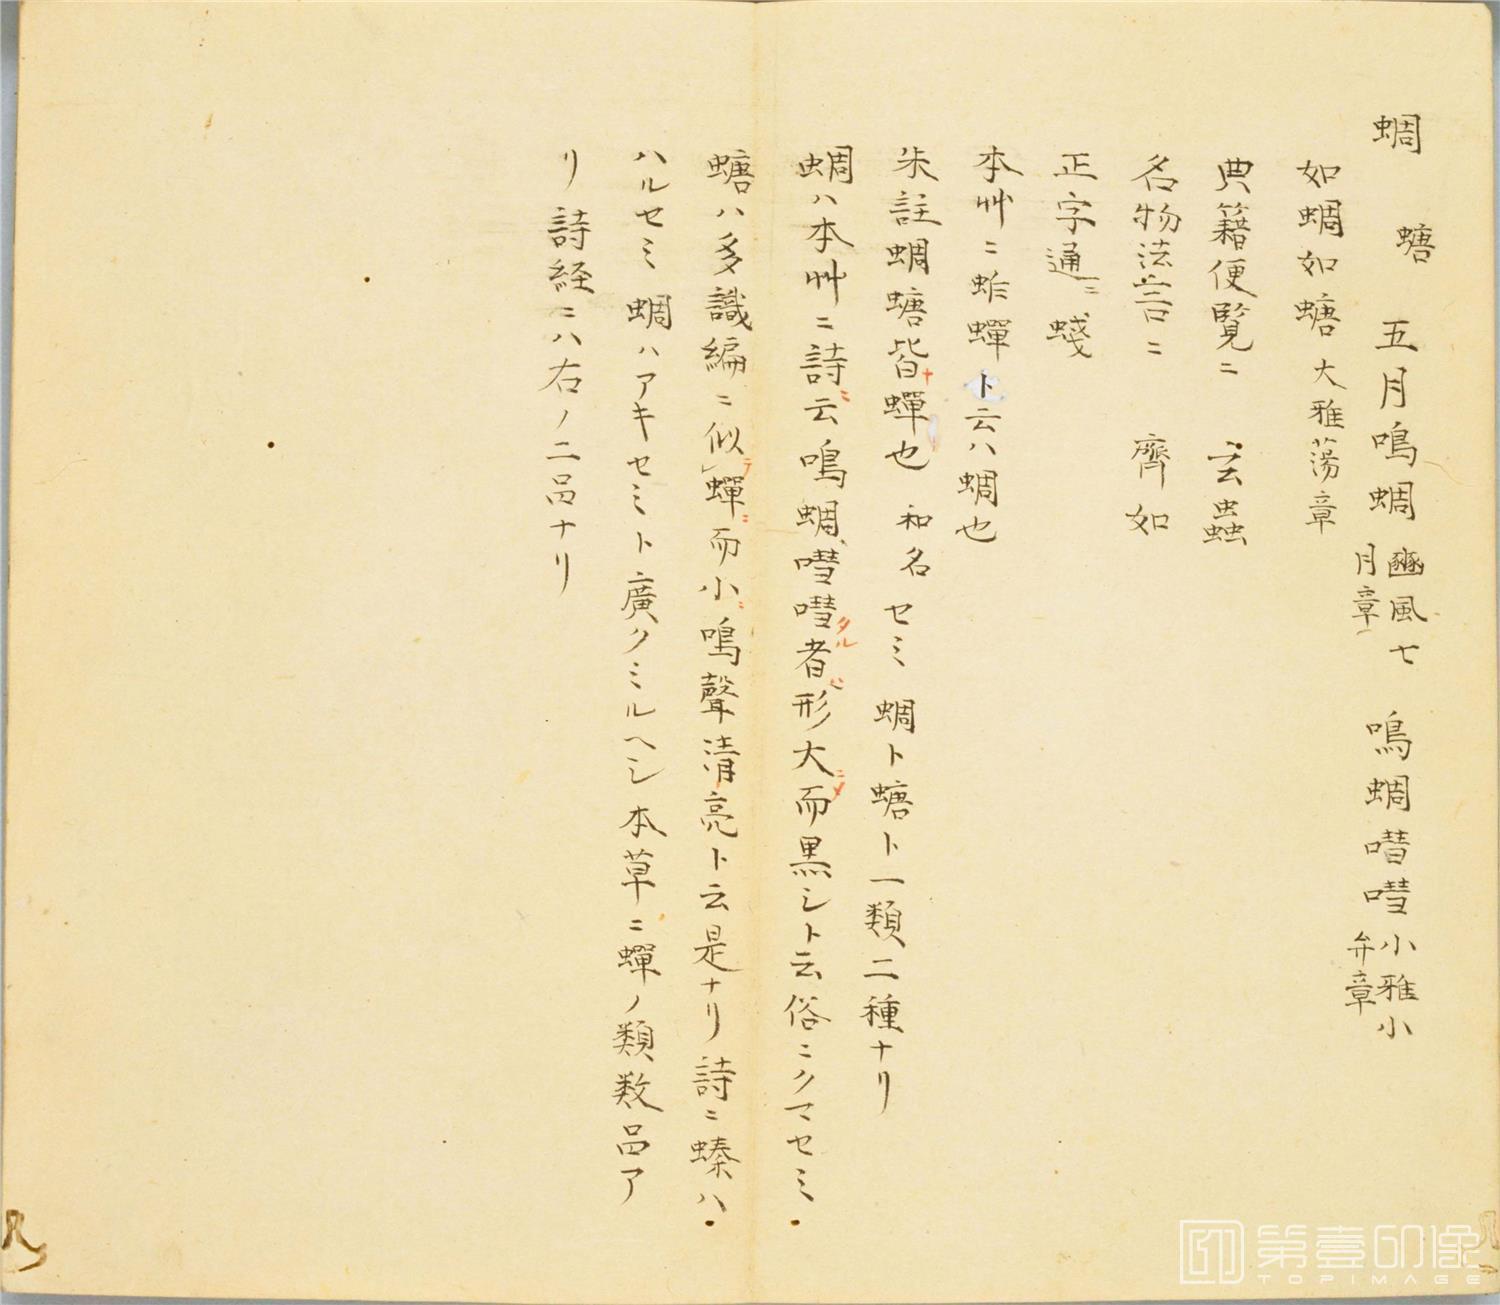 蜩　螗　五月鳴蜩　豳風七月章　鳴蜩嘒嘒　小雅小弁章
如蜩如螗　大雅蕩章
典籍便覽ニ　玄蟲
名物法言ニ　齊如
正字通ニ　蝬
本艸ニ蚱蟬ト云ハ蜩也
朱註蜩螗皆蟬也　和名セミ　蜩ト螗ト一類二種ナリ
蜩ハ本艸ニ詩ニ云鳴蜩嘒嘒タル者ハ形大ニメ而黒シト云俗ニクマセミ
螗ハ多識編ニ似テ蟬ニ而小ニ鳴聲清亮ト云是ナリ詩ニ螓ハ
ハルセミ蜩ハアキセミト廣クミルヘシ本草ニ蟬ノ類数品ア
リ詩経ニハ右ノ二品ナリ
第壹印像
TOPIMAGE